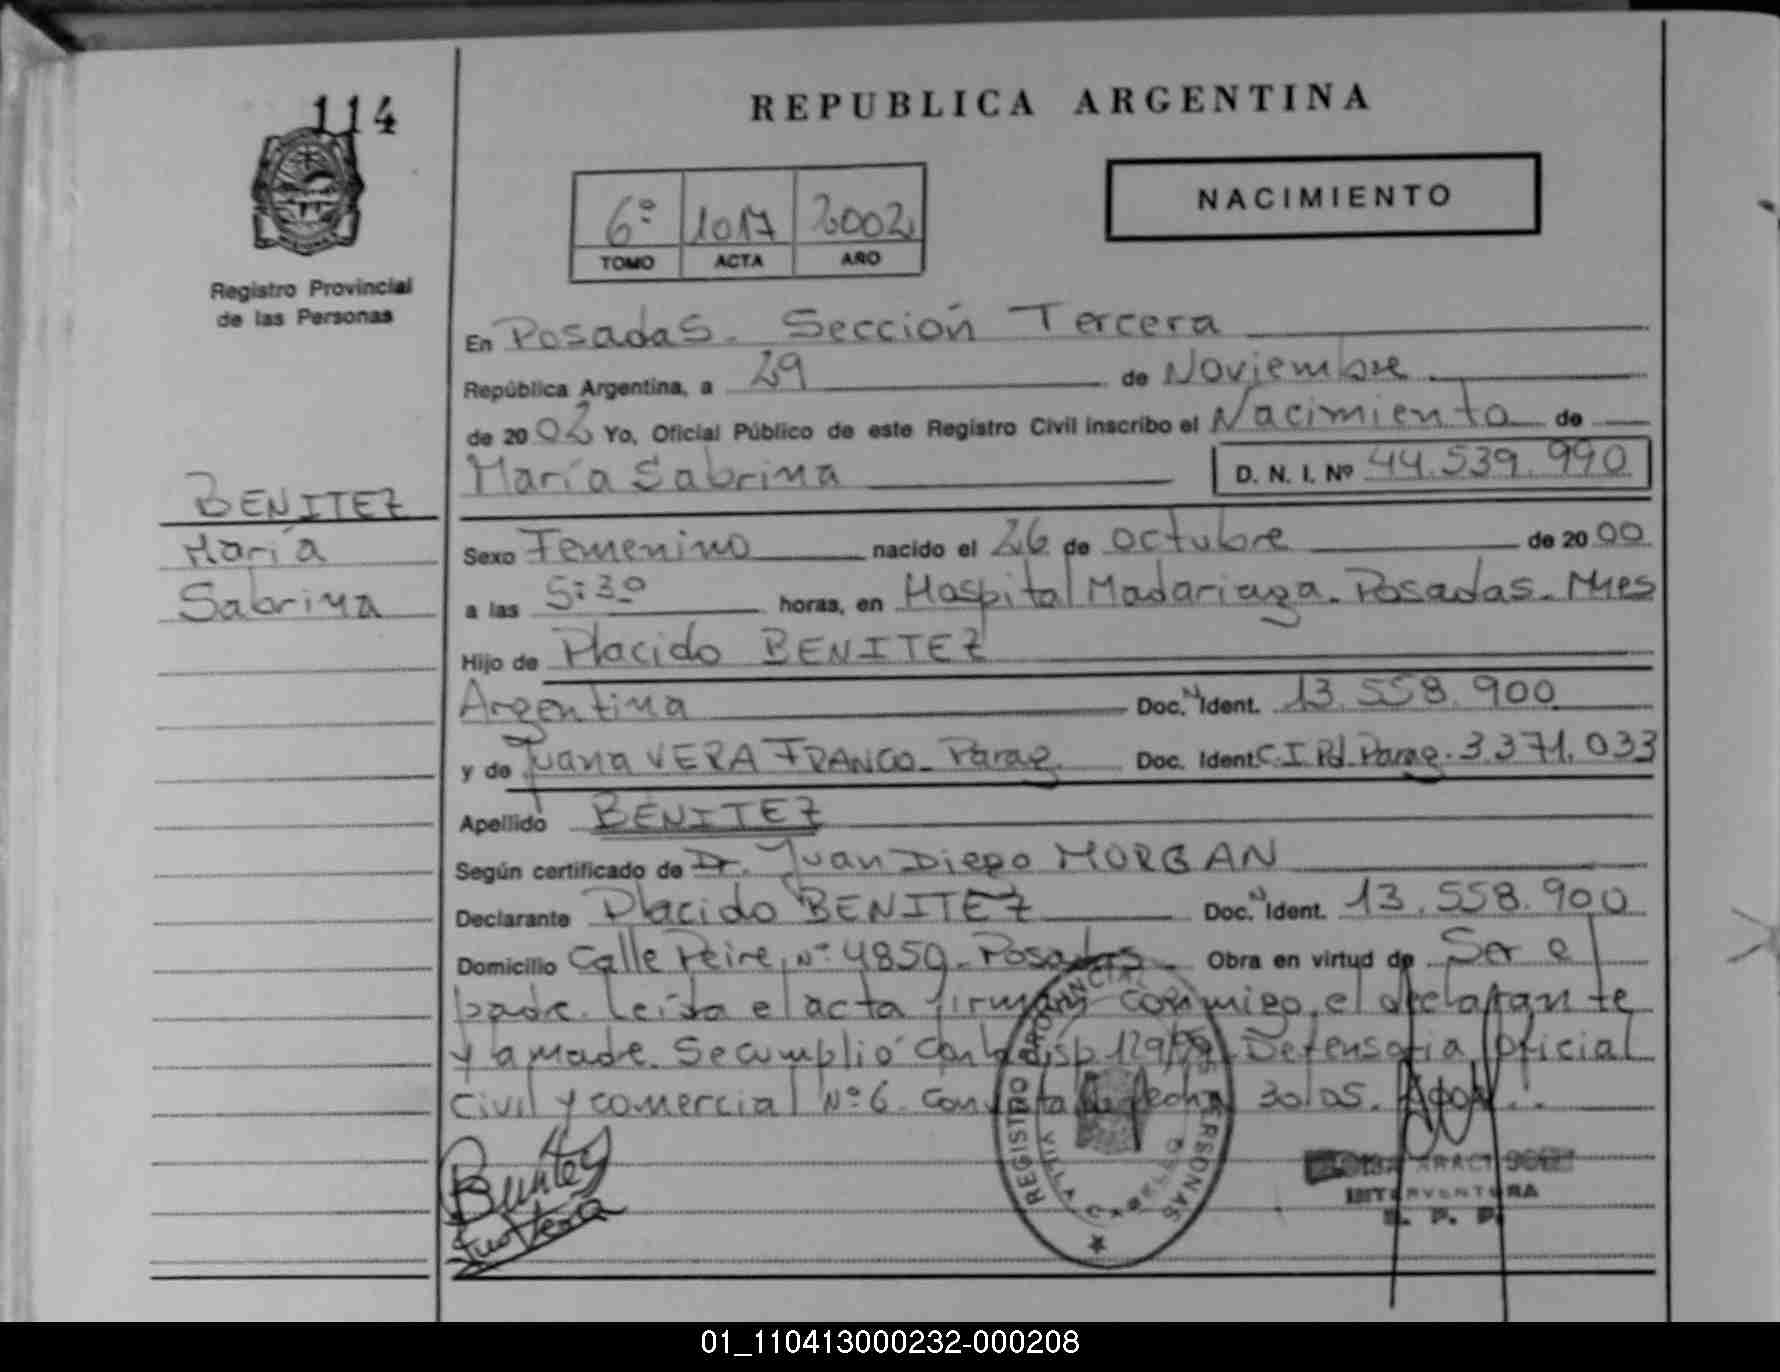 114
REPUBLICA ARGENTINA
6º 1017 2002
TOMO ACTA AÑO
NACIMIENTO
Registro Provincial
de las Personas
En Posadas. Sección Tercera
República Argentina, a 29 de Noviembre
de 2002 Yo, Oficial Público de este Registro Civil inscribo el Nacimiento de
María Sabrina D. N. I. Nº 44.539.990
BENITEZ
María
Sabrina
Sexo Femenino nacido el 26 de octubre de 2000
a las 5:30 horas, en Hospital Madariaga. Posadas. Mnes
Hijo de Placido BENITEZ
Argentina Doc. N Ident. 13.558.900
y de Juana VERA FRANCO. Parag. Doc. Ident. C.I. Pol. Parag. 3.371.033
Apellido BENITEZ
Según certificado de Dr. Juan Diego MORGAN
Declarante Placido BENITEZ Doc. N Ident. 13.558.900
Domicilio Calle Peire, Nº 4859. Posadas. Obra en virtud de Ser el
padre. Leída el acta firman conmigo, el declarante
y la madre. Se cumplió con la disp. 129/99 Defensoria Oficial
Civil y comercial Nº 6. fecha 30/05.
Benitez
REGISTRO PROVINCIAL PERSONAS
INTERVENTORA
R. P. P.
01_110413000232-000208